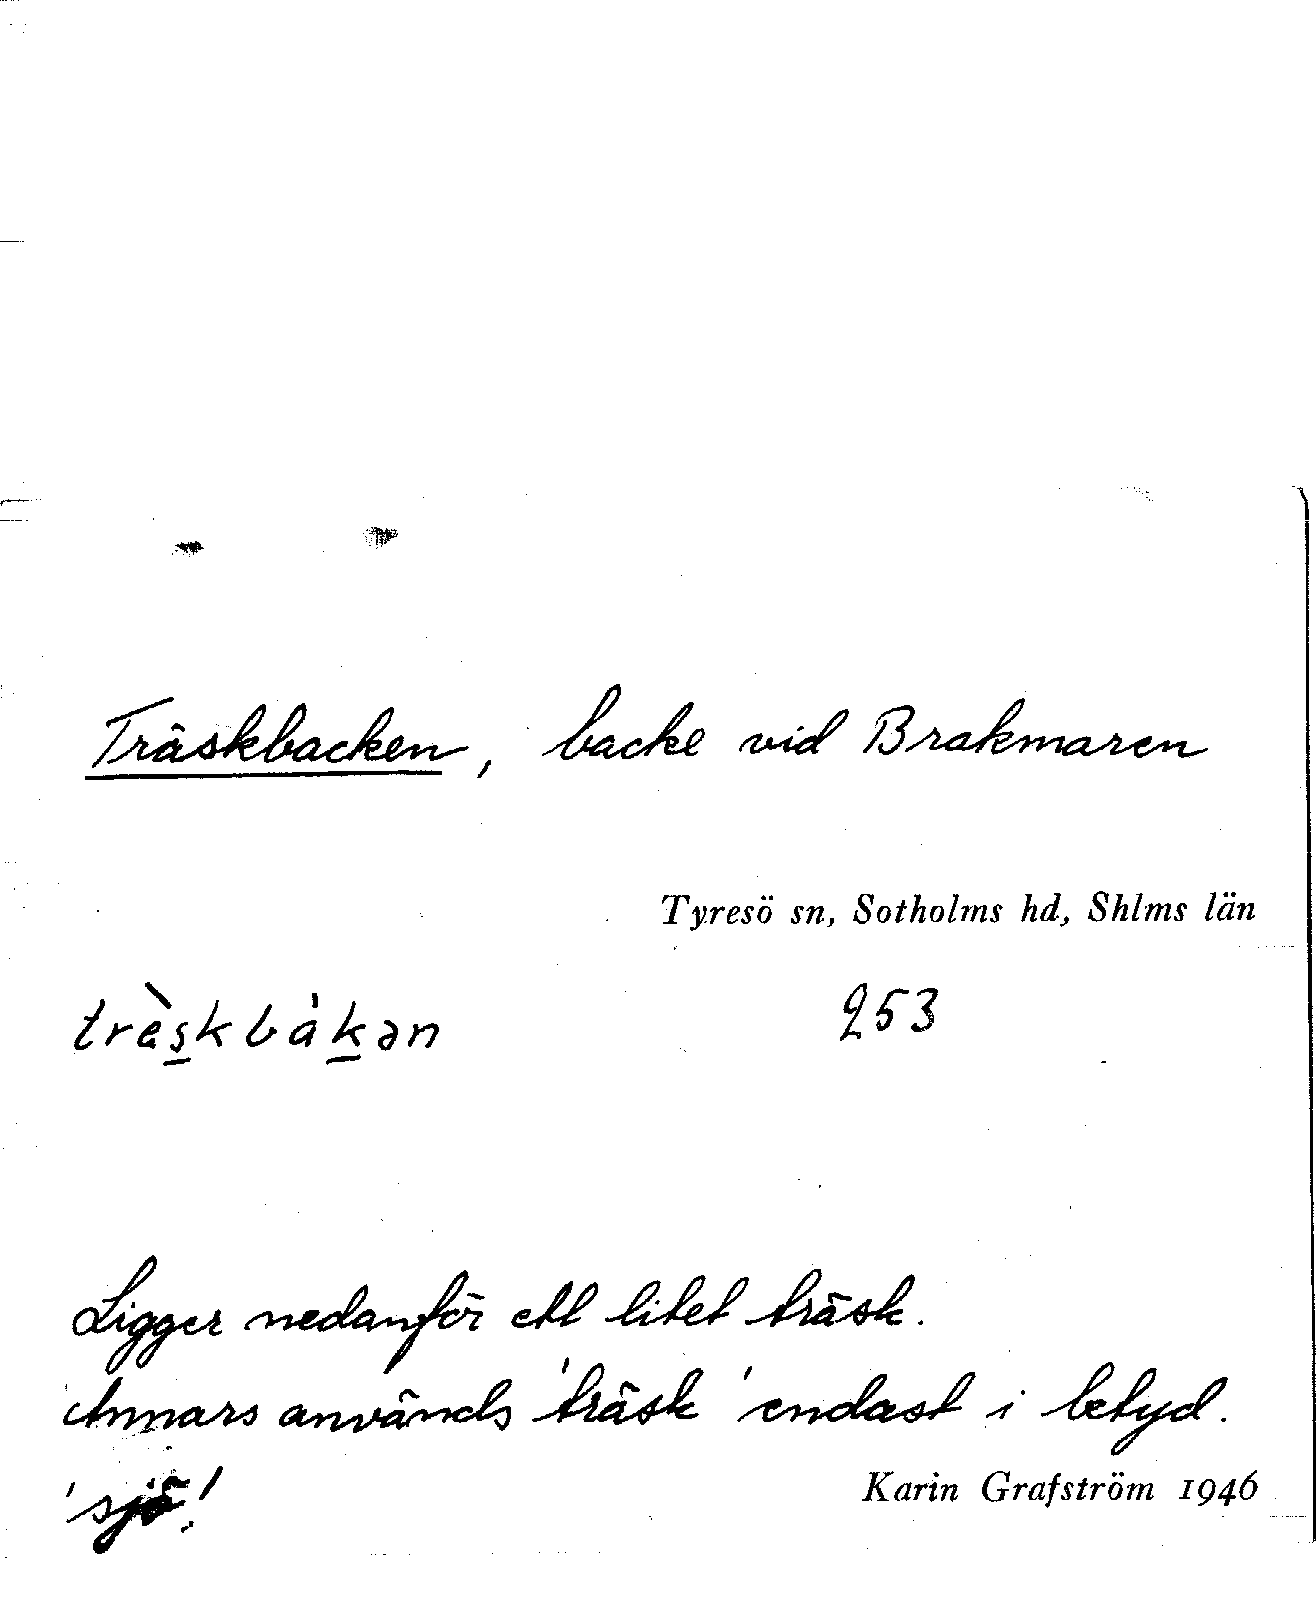 Träskbacken, backe vid Brakmaren
Tyresö sn, Sotholms hd, Shlms län
trè̀s̲kbàk̲ən 253
Ligger nedanför ett litet träsk.
Annars används 'träsk' endast i betyd.
'sjö'.
Karin Grafström 1946